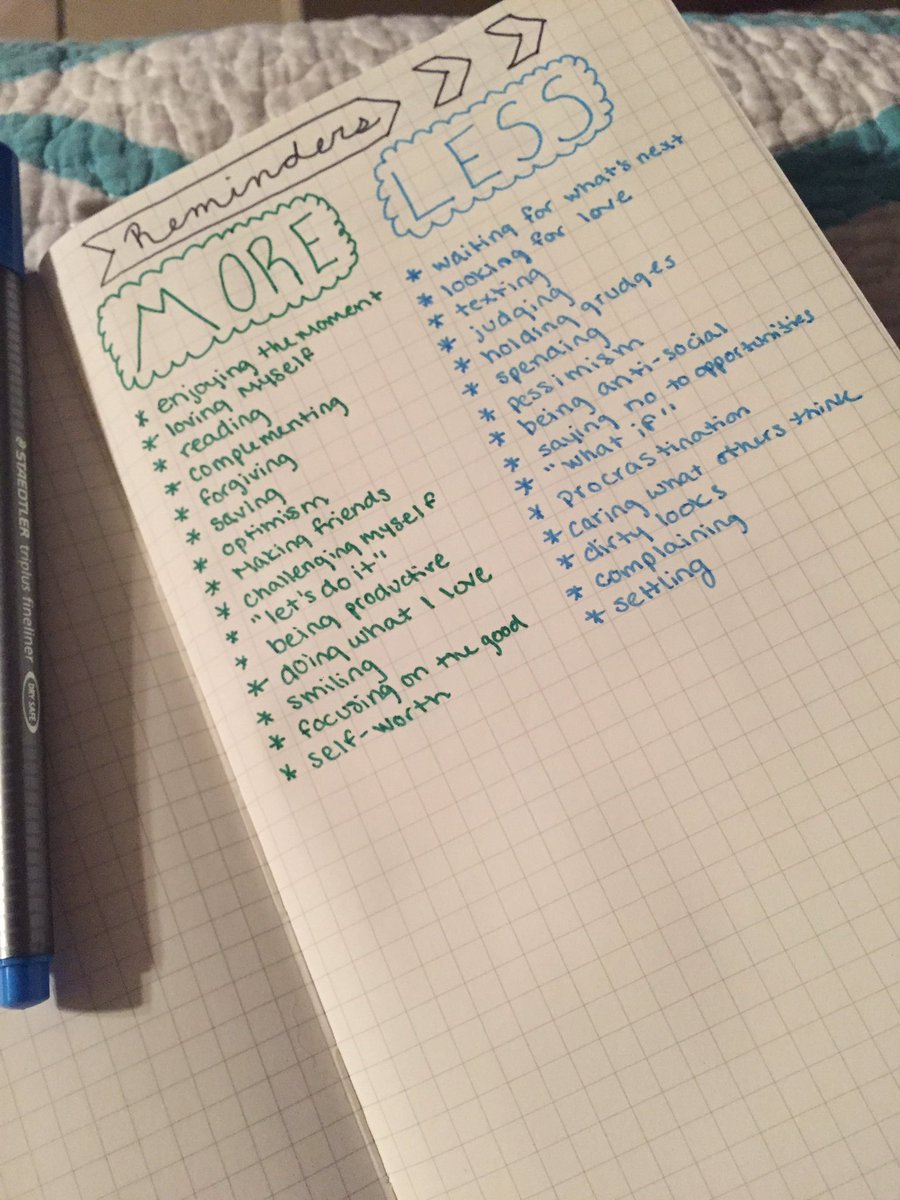 Reminders
MORE
* enjoying the moment
* loving myself
* reading
* complementing
* forgiving
* saving
* optimism
* making friends
* challenging myself
* "let's do it"
* being productive
* doing what I love
* smiling
* focusing on the good
* self-worth
LESS
* waiting for what's next
* looking for love
* texting
* judging
* holding grudges
* spending
* pessimism
* being anti-social
* saying no to opportunities
* "what if"
* procrastination
* caring what others think
* dirty looks
* complaining
* settling
STAEDTLER triplus fineliner
DRY SAFE